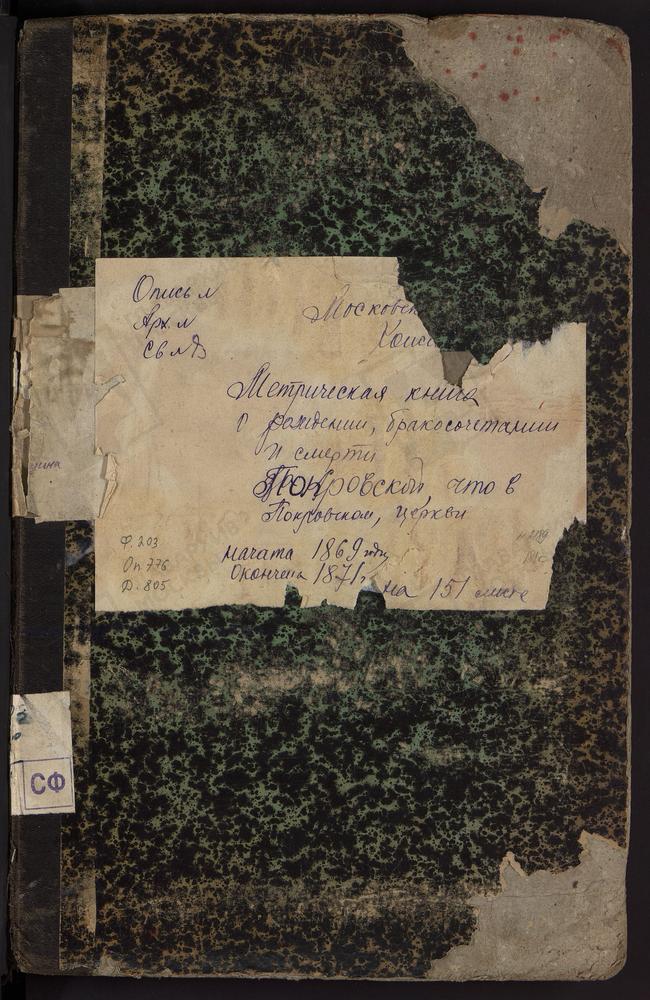 Опись №
Арх. №
Св №
Московск
Конс
Метрическая книга
о рождении, бракосочетании
и смерти
Покровской, что в
Покровском, церкви
начата 1869 году
окончена 1871 г. на 151 листе
Ф. 203
Оп 776
Д. 805
СФ